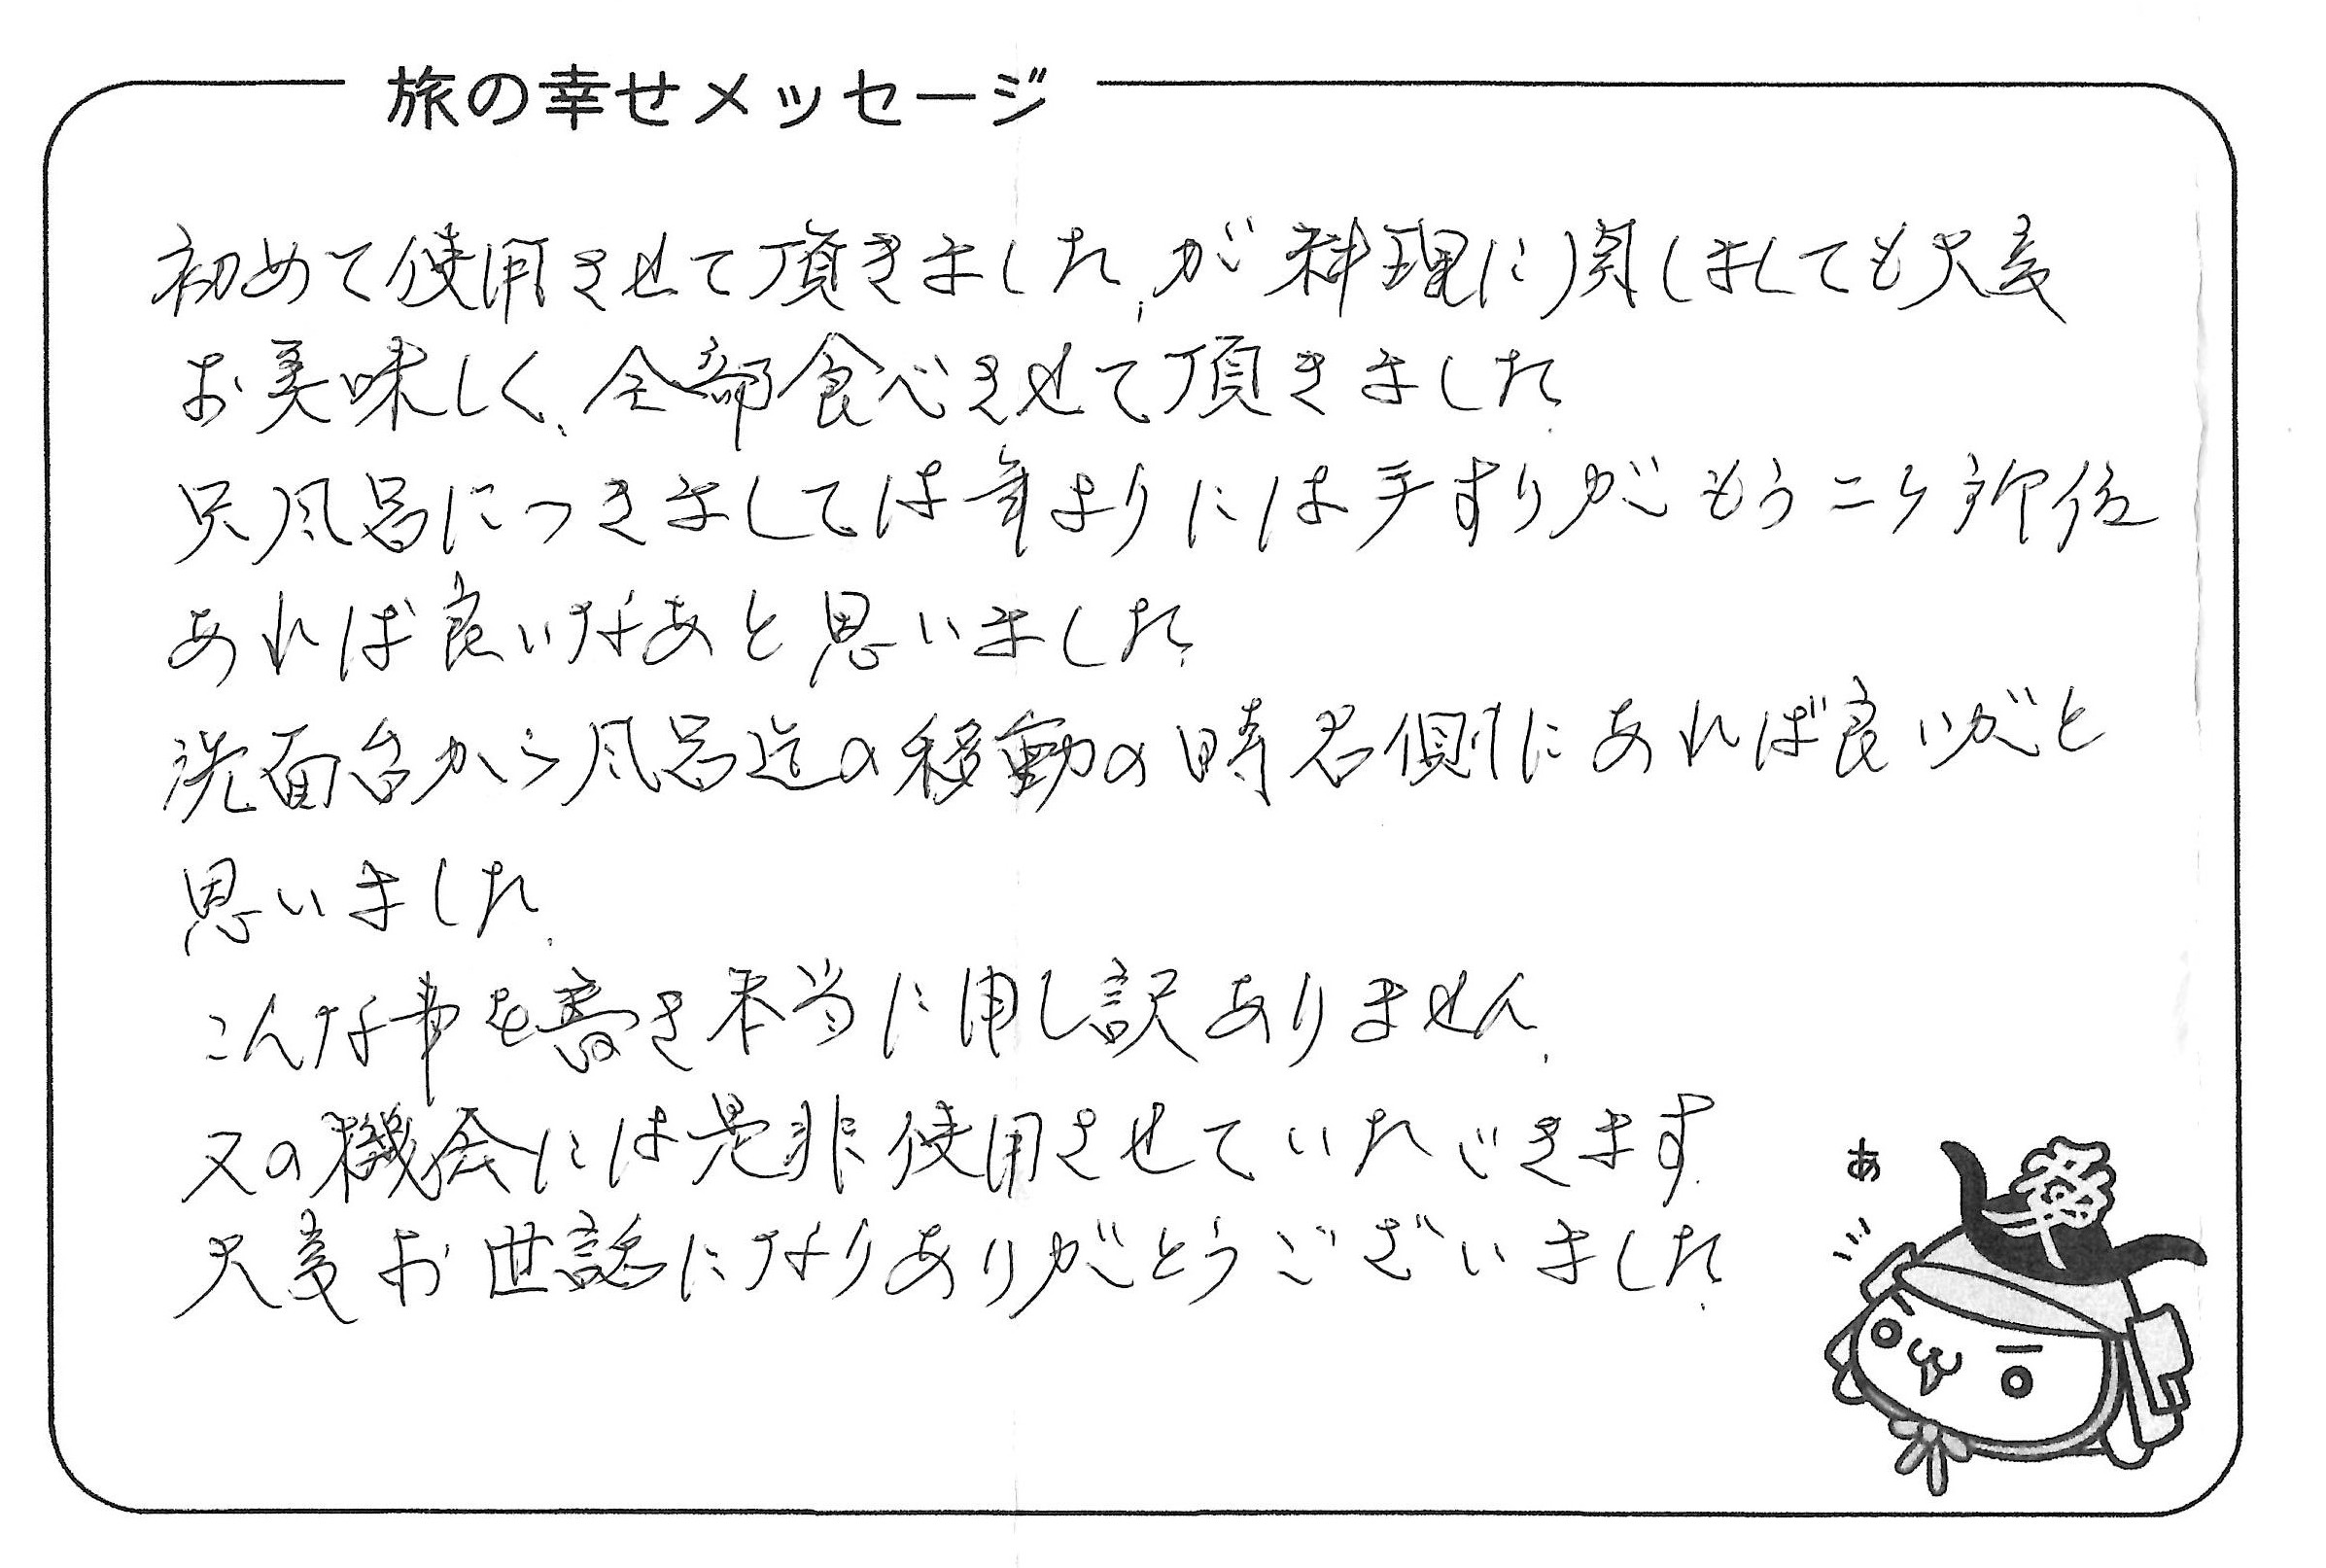 旅の幸せメッセージ
初めて使用させて頂きました、が料理に関しましても大変
お美味しく、全部食べさせて頂きました。
只風呂につきましては年よりには手すりがもう二ヶ所位
あれば良いなあと思いました。
洗面台から風呂迄の移動の時右側にあれば良いがと
思いました。
こんな事を書き本当に申し訳ありません。
又の機会には是非使用させていただきます。
大変お世話になりありがとうございました。
あ